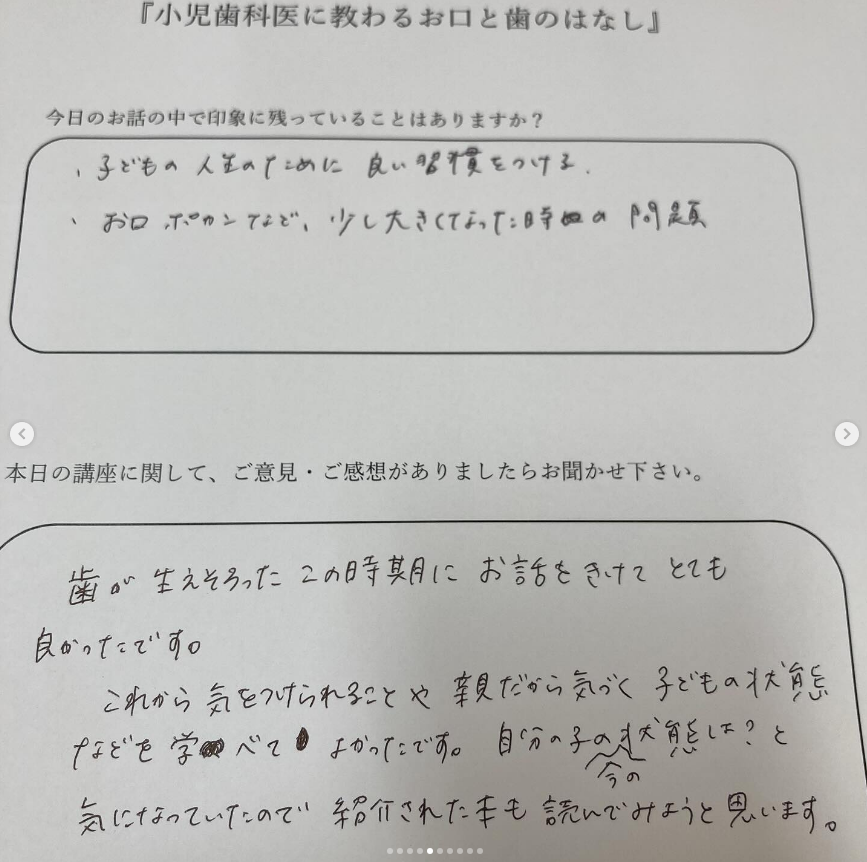 『小児歯科医に教わるお口と歯のはなし』
今日のお話の中で印象に残っていることはありますか？
、子どもの 人生のために 良い習慣をつける.
、お口ポカンなど、少し大きくなった時の 問題
本日の講座に関して、ご意見・ご感想がありましたらお聞かせ下さい。
歯が 生えそろった この時期に お話をきけて とても
良かったです。
これから 気をつけられることや 親だから気づく 子どもの状態
などを 学べて よかったです。 自分の子の今の状態は？と
気になっていたので 紹介された本も 読んでみようと思います。